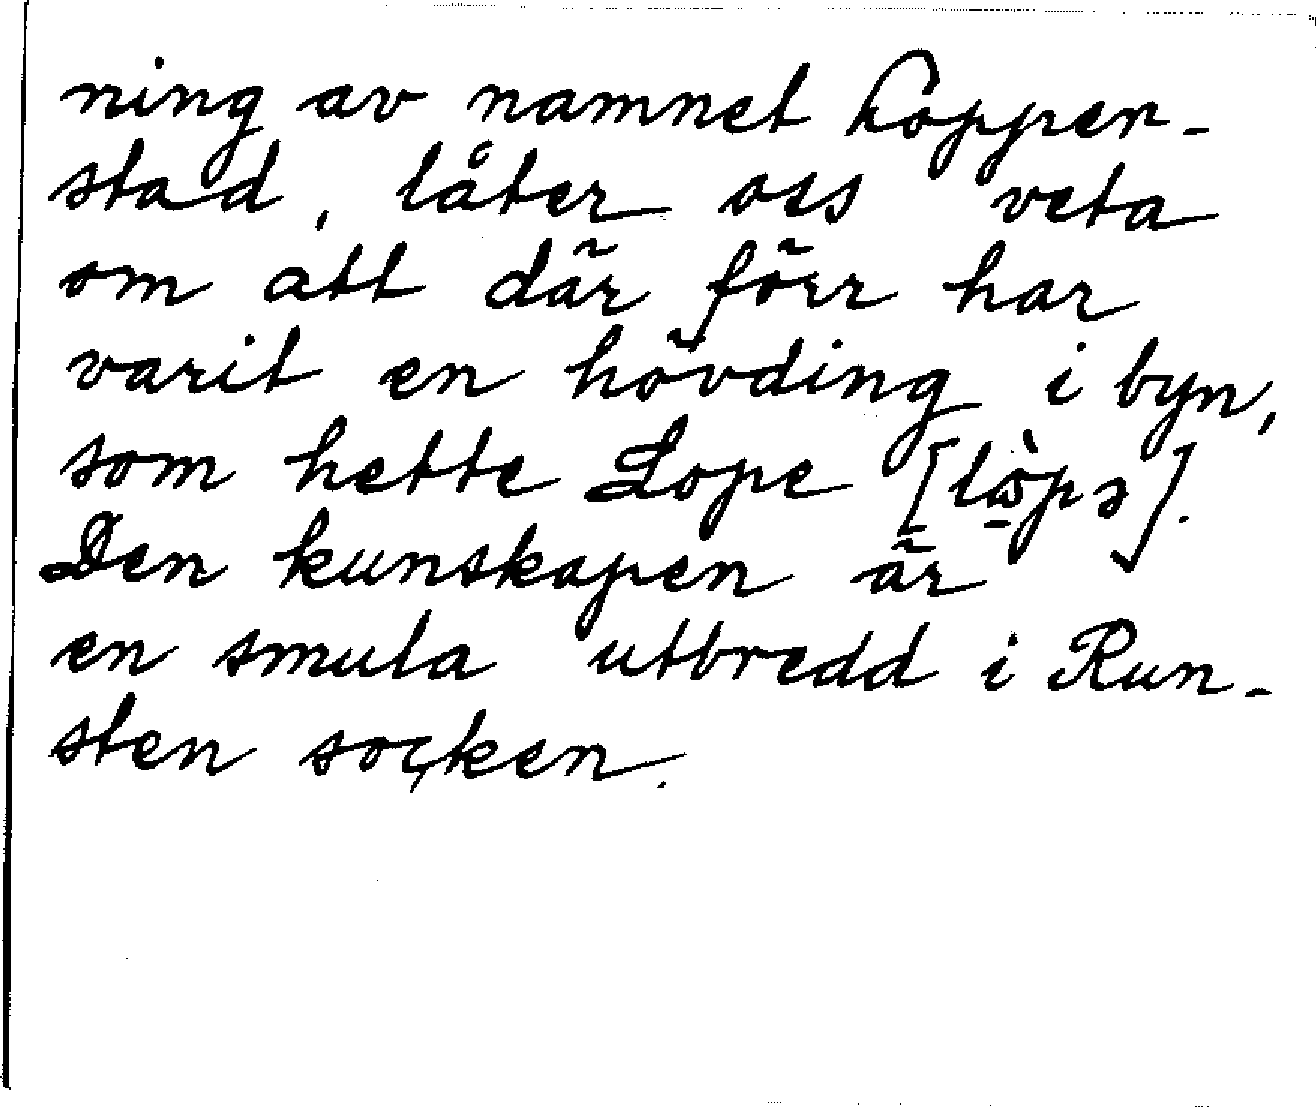 ning av namnet Lopper-
stad, låter oss veta
om att där förr har
varit en hövding i byn,
som hette Lope [lὼ̲pə].
Den kunskapen är
en smula utbredd i Run-
sten socken.